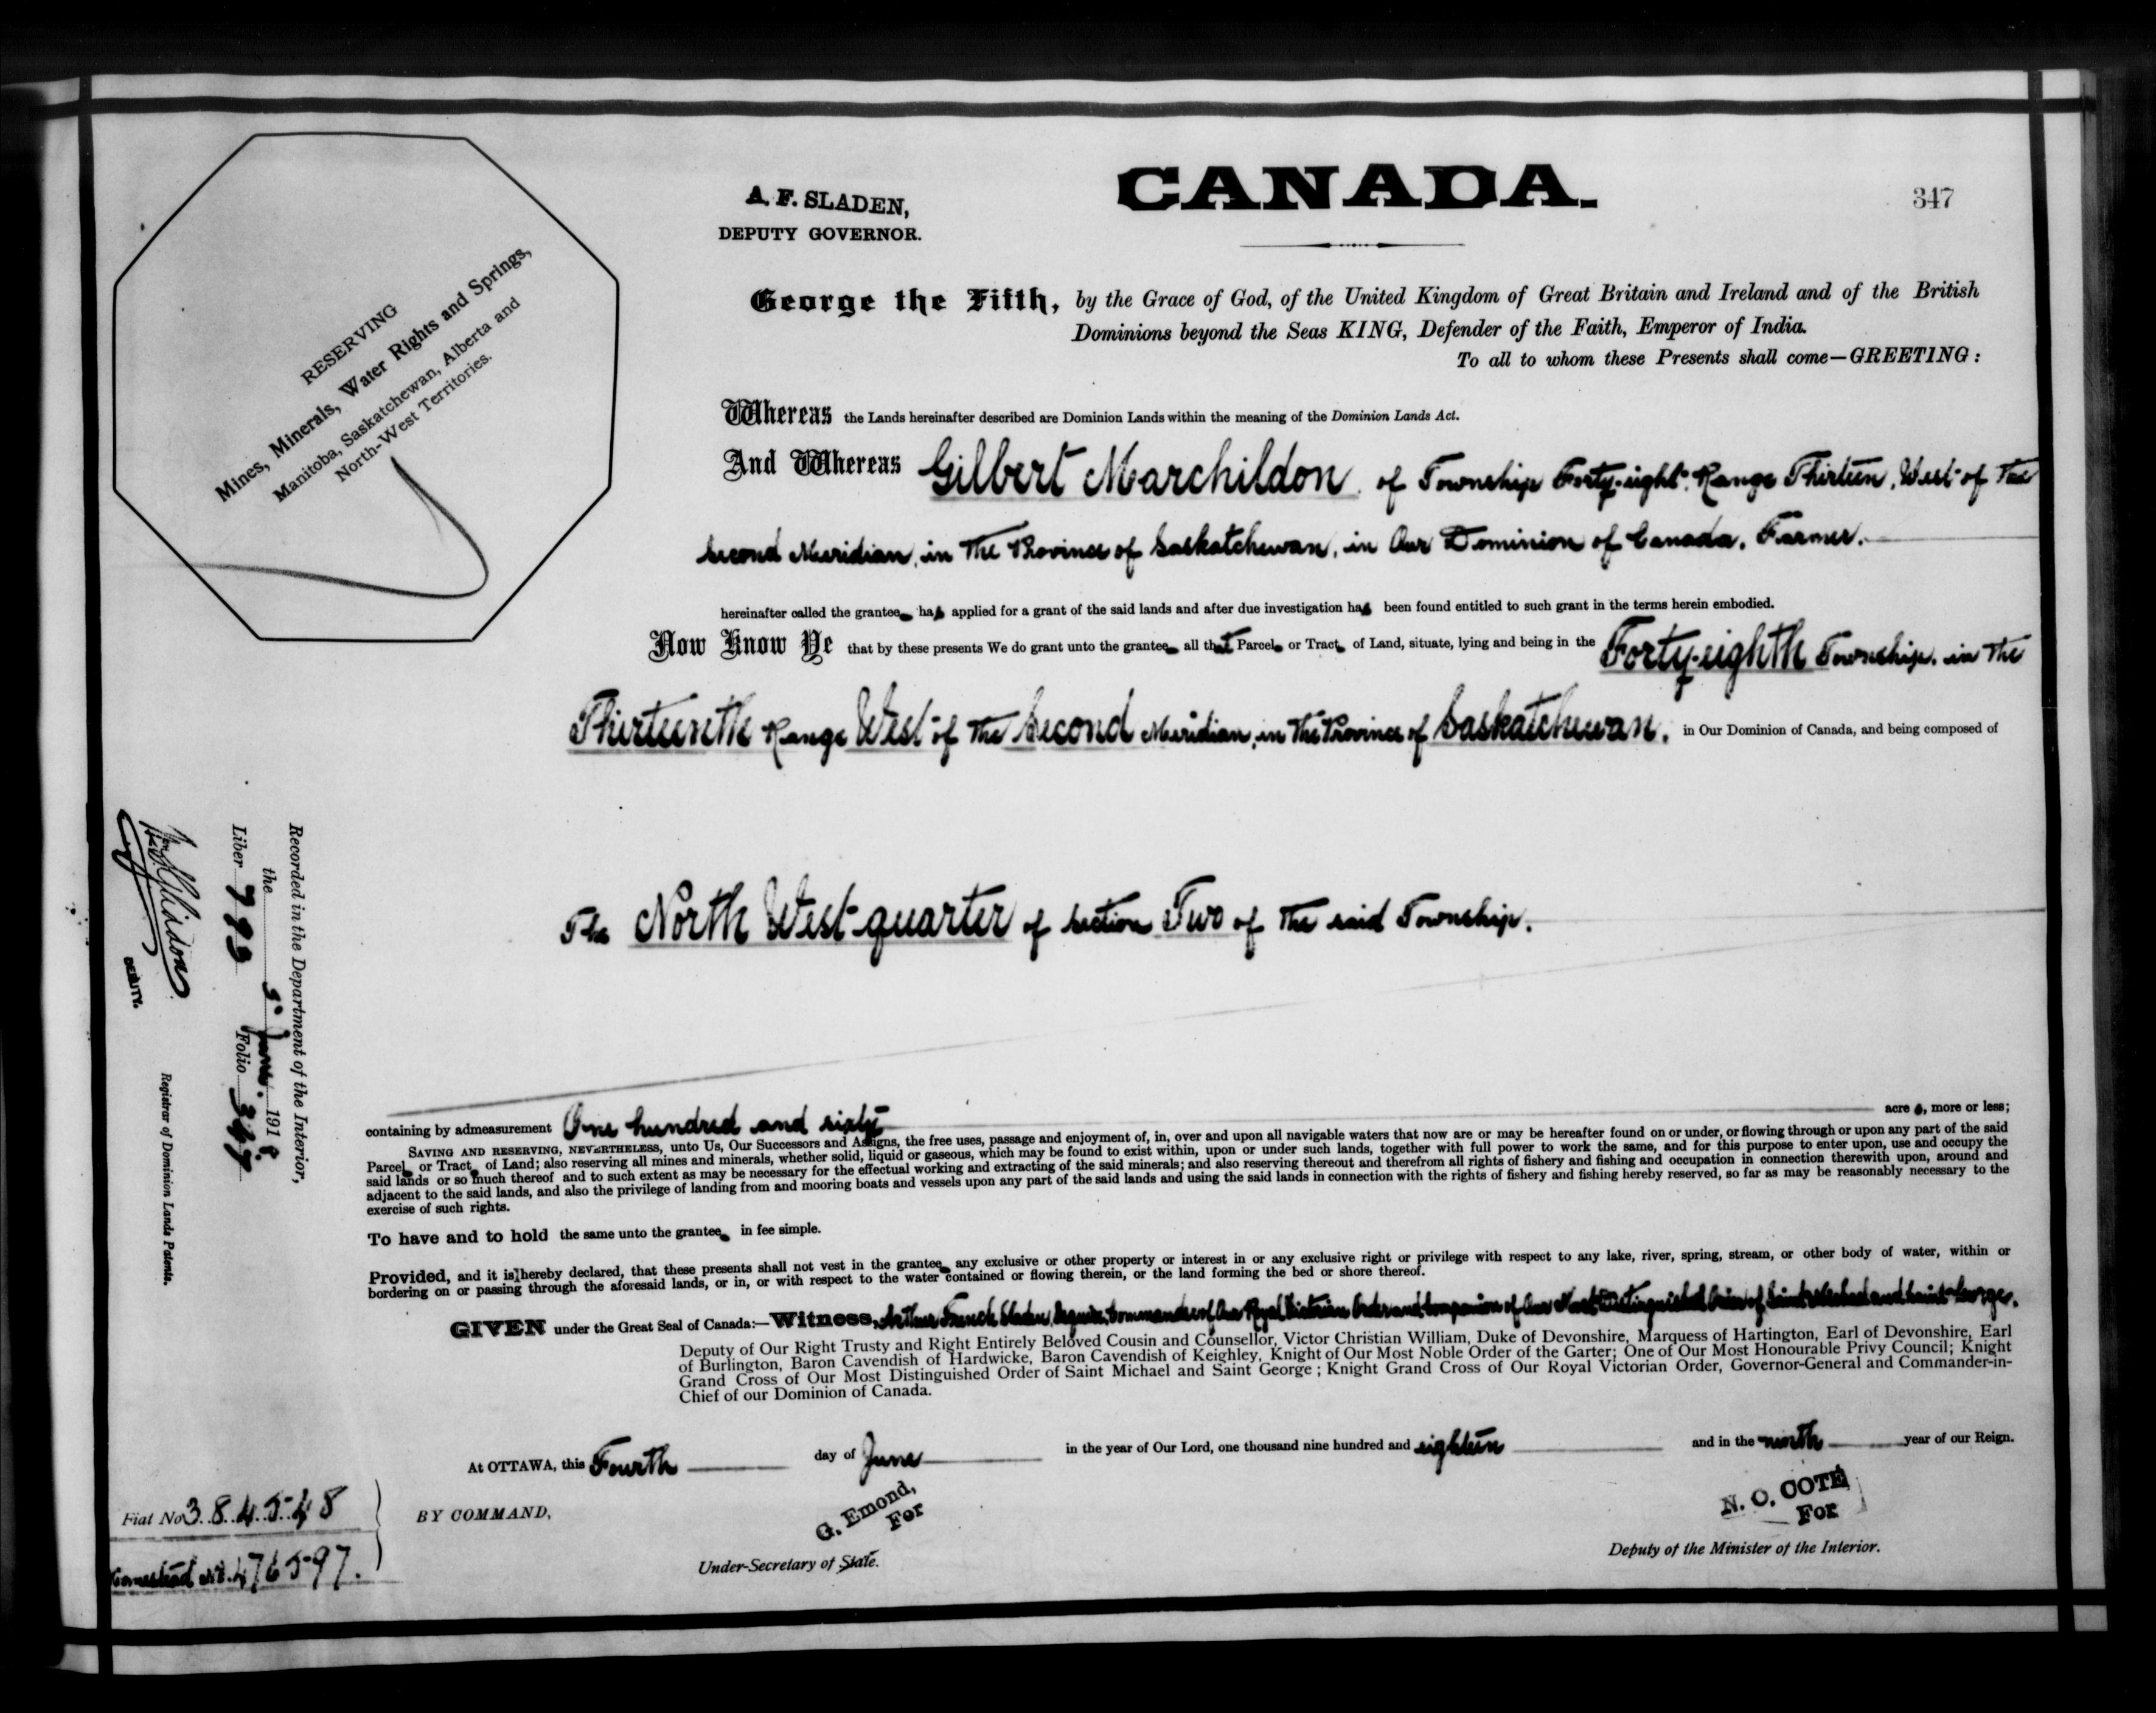 CANADA.
347
A. F. SLADEN,
DEPUTY GOVERNOR.
RESERVING
Mines, Minerals, Water Rights and Springs,
Manitoba, Saskatchewan, Alberta and
North-West Territories.
George the Fifth, by the Grace of God, of the United Kingdom of Great Britain and Ireland and of the British
Dominions beyond the Seas KING, Defender of the Faith, Emperor of India.
To all to whom these Presents shall come—GREETING:
Whereas the Lands hereinafter described are Dominion Lands within the meaning of the Dominion Lands Act.
And Whereas Gilbert Marchildon, of Township Forty-eight, Range Thirteen, West of the
Second Meridian, in the Province of Saskatchewan, in Our Dominion of Canada, Farmer.
hereinafter called the grantee has applied for a grant of the said lands and after due investigation has been found entitled to such grant in the terms herein embodied.
Now Know Ye that by these presents We do grant unto the grantee all that Parcel or Tract of Land, situate, lying and being in the Forty-eighth Township, in the
Thirteenth Range West of the Second Meridian, in the Province of Saskatchewan, in Our Dominion of Canada, and being composed of
The North West quarter of Section Two of the said Township.
Recorded in the Department of the Interior,
the 5th June 1918
Liber 793 Folio 347
DEPUTY.
Registrar of Dominion Lands Patents.
containing by admeasurement One hundred and sixty acres, more or less;
SAVING AND RESERVING, NEVERTHELESS, unto Us, Our Successors and Assigns, the free uses, passage and enjoyment of, in, over and upon all navigable waters that now are or may be hereafter found on or under, or flowing through or upon any part of the said
Parcel or Tract of Land; also reserving all mines and minerals, whether solid, liquid or gaseous, which may be found to exist within, upon or under such lands, together with full power to work the same, and for this purpose to enter upon, use and occupy the
said lands or so much thereof and to such extent as may be necessary for the effectual working and extracting of the said minerals; and also reserving thereout and therefrom all rights of fishery and fishing and occupation in connection therewith upon, around and
adjacent to the said lands, and also the privilege of landing from and mooring boats and vessels upon any part of the said lands and using the said lands in connection with the rights of fishery and fishing hereby reserved, so far as may be reasonably necessary to the
exercise of such rights.
To have and to hold the same unto the grantee in fee simple.
Provided, and it is hereby declared, that these presents shall not vest in the grantee any exclusive or other property or interest in or any exclusive right or privilege with respect to any lake, river, spring, stream, or other body of water, within or
bordering on or passing through the aforesaid lands, or in, or with respect to the water contained or flowing therein, or the land forming the bed or shore thereof.
GIVEN under the Great Seal of Canada:—Witness, Arthur French Sladen, Esquire, Commander of Our Royal Victorian Order and Companion of Our Most Distinguished Order of Saint Michael and Saint George,
Deputy of Our Right Trusty and Right Entirely Beloved Cousin and Counsellor, Victor Christian William, Duke of Devonshire, Marquess of Hartington, Earl of Devonshire, Earl
of Burlington, Baron Cavendish of Hardwicke, Baron Cavendish of Keighley, Knight of Our Most Noble Order of the Garter; One of Our Most Honourable Privy Council; Knight
Grand Cross of Our Most Distinguished Order of Saint Michael and Saint George; Knight Grand Cross of Our Royal Victorian Order, Governor-General and Commander-in-
Chief of our Dominion of Canada.
At OTTAWA, this Fourth day of June in the year of Our Lord, one thousand nine hundred and eighteen and in the ninth year of our Reign.
Fiat No 384548
Homestead No. 476597.
BY COMMAND,
G. Emond,
For
Under-Secretary of State.
N. O. COTE
For
Deputy of the Minister of the Interior.